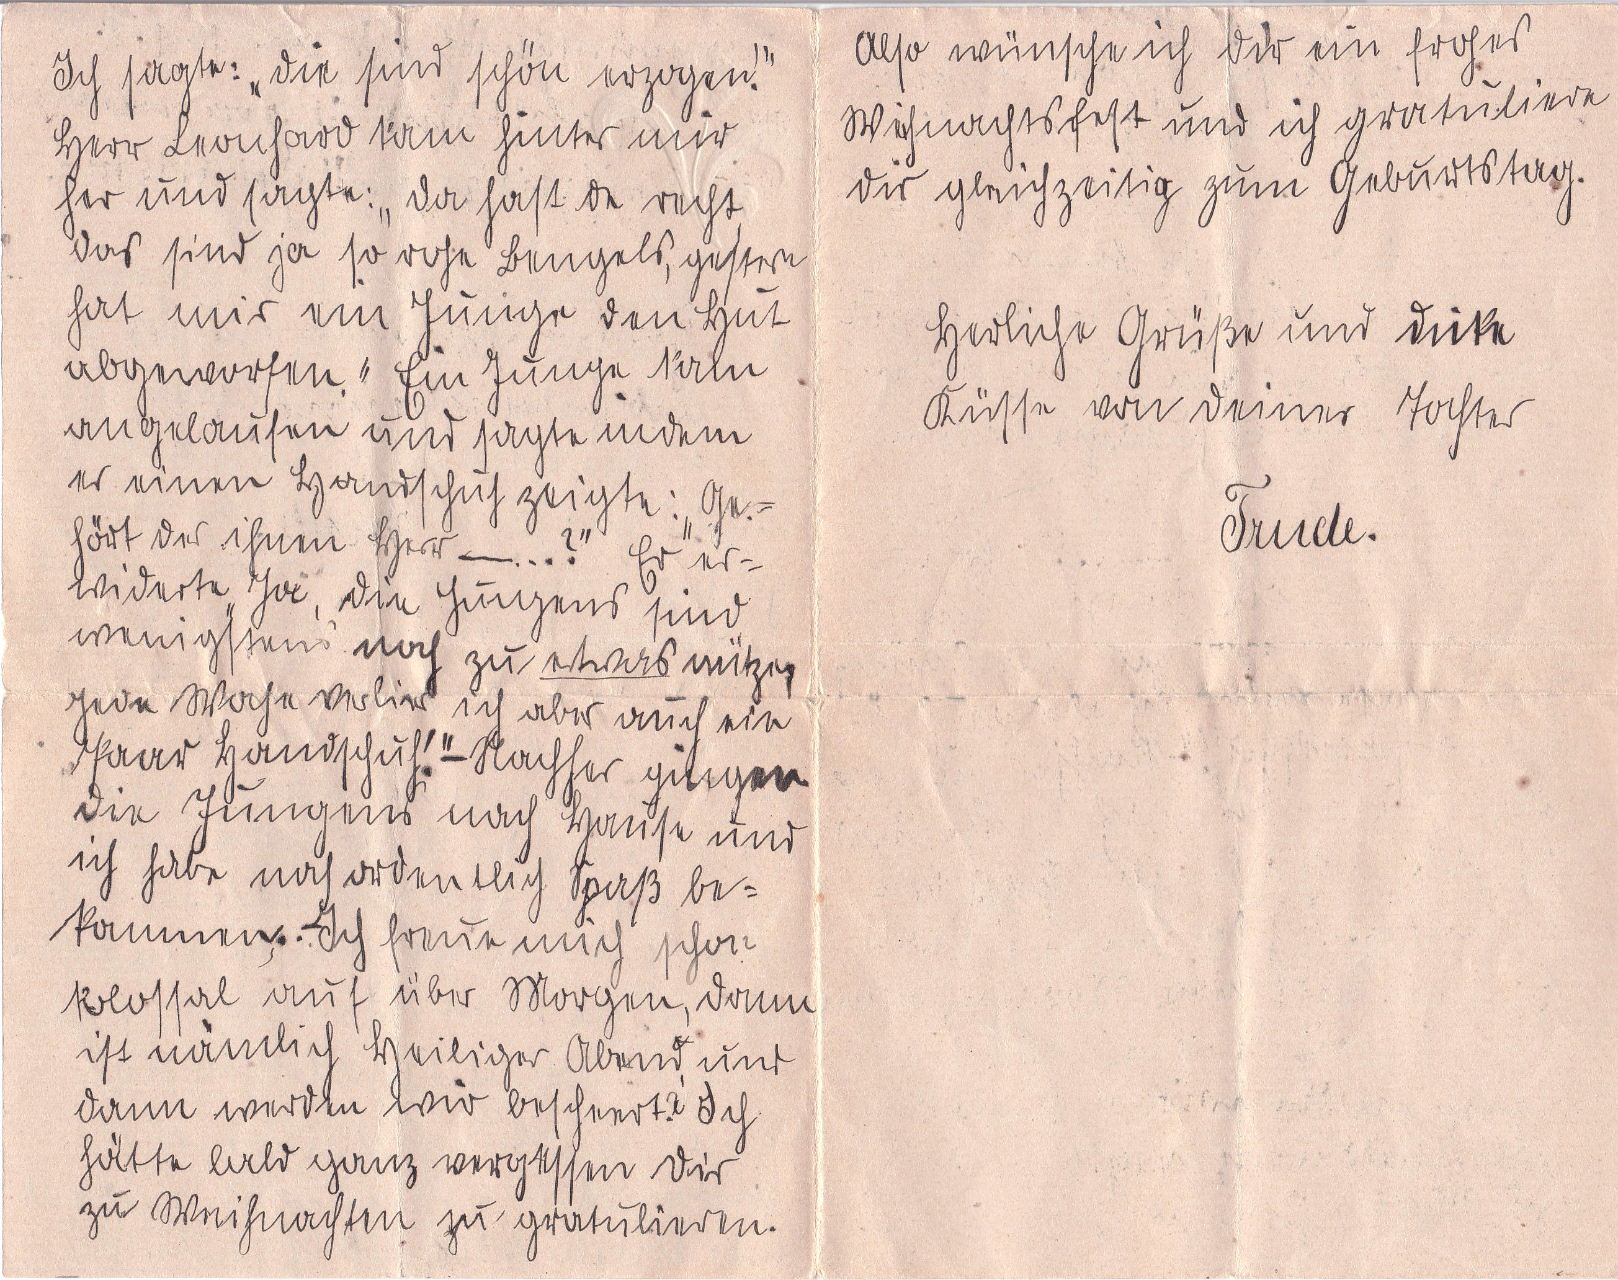 Ich sagte: „die sind schön erzogen!"
Herr Leonhard kam hinter mir
her und sagte: „da hast de recht
das sind ja so rohe Bengels, gestern
hat mir ein Junge den Hut
abgeworfen." Ein Junge kam
angelaufen und sagte indem
er einen Handschuh zeigte: „Ge=
hört der ihnen Herr —...?" Er er=
widerte „Ja, die Jungens sind
wenigstens noch zu etwas nütze,
jede Woche verlier ich aber auch ein
Paar Handschuh!" – Nachher gingen
die Jungens nach Hause und
ich habe noch ordentlich Spaß be=
kommen. – Ich freue mich schon
kolossal auf über Morgen, dann
ist nämlich Heiliger Abend und
dann werden wir bescheert. Ich
hätte bald ganz vergessen Dir
zu Weihnachten zu gratulieren.
Also wünsche ich dir ein frohes
Weihnachtsfest und ich gratuliere
dir gleichzeitig zum Geburtstag.
Herliche Grüße und dicke
Küsse von deiner Tochter
Trude.